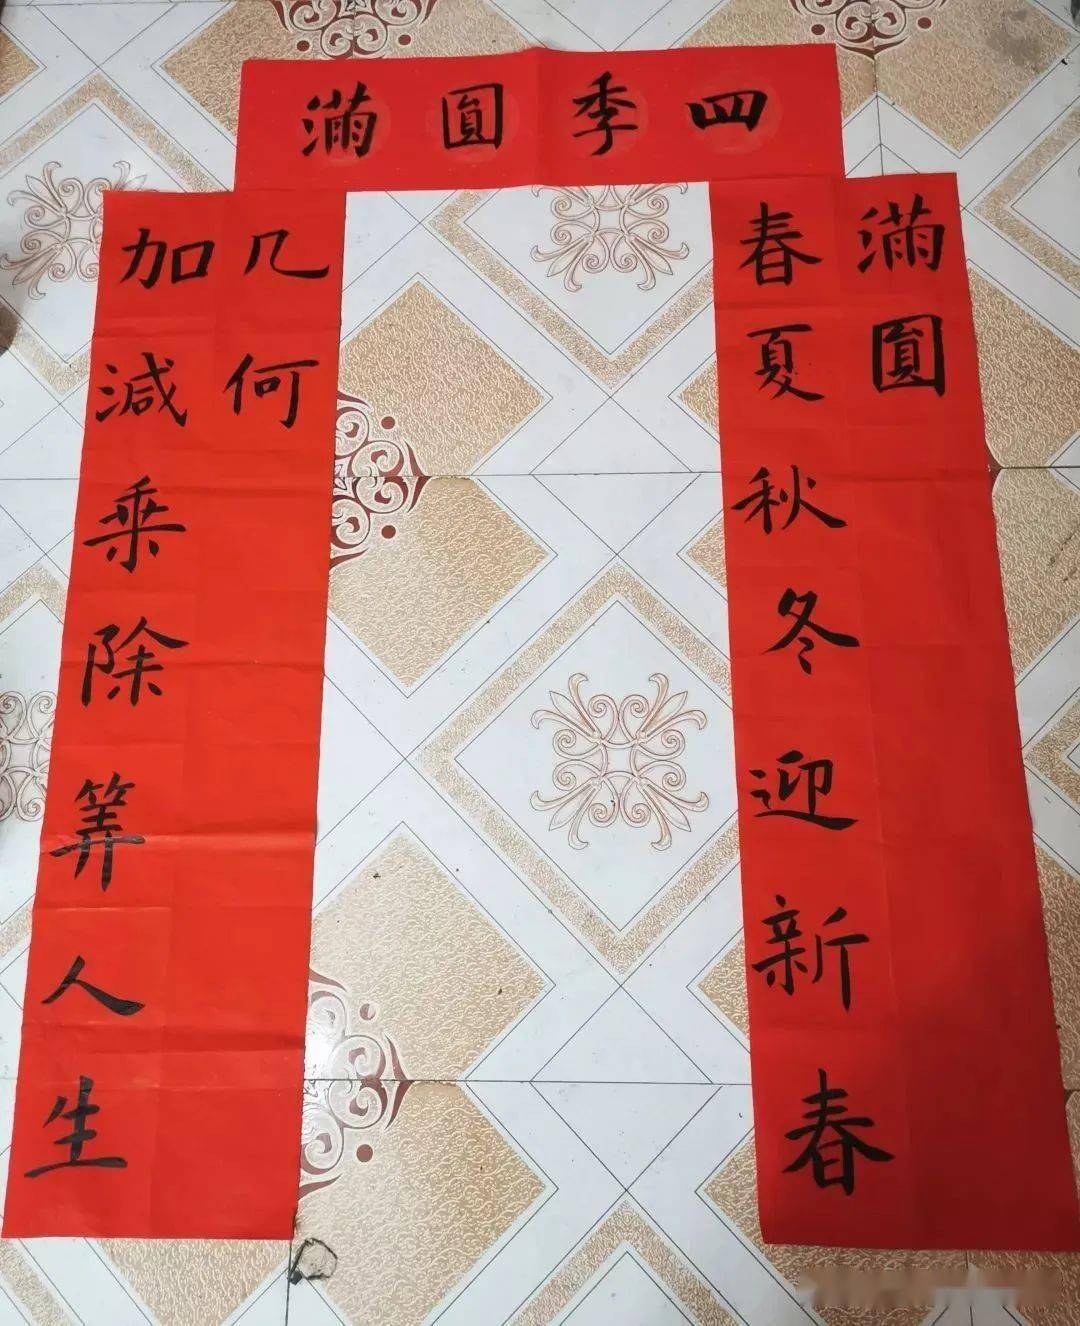 四季圓滿
春夏秋冬迎新春
滿圓
加減乘除算人生
几何